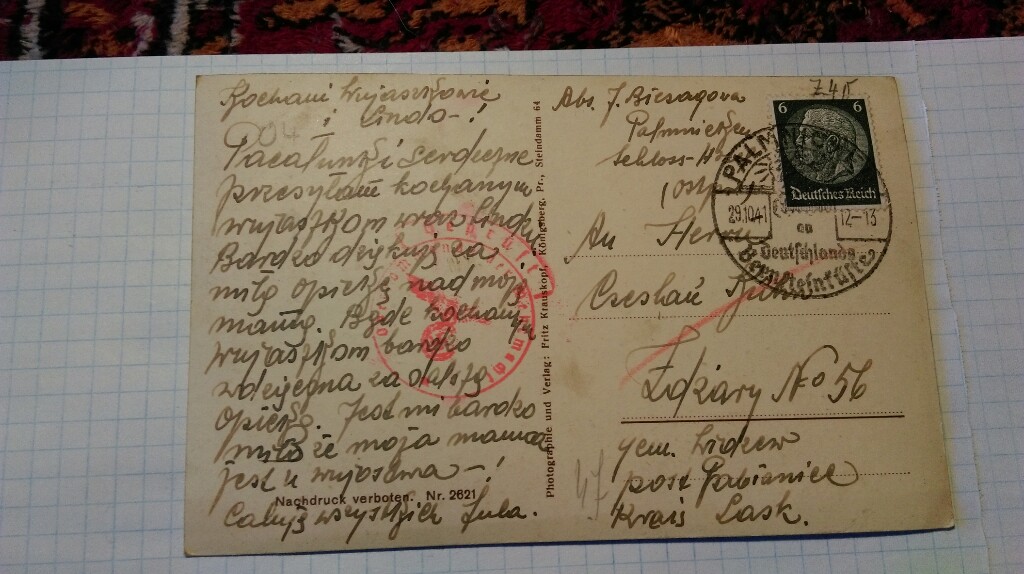 Kochani Wujaszkowie
i Lindo-!
Pacałunki i serdeczne
przesyłam kochanym
wujaszkom wraz Lindy
Bardzo dziękuję za
miłą opiekę nad moją
mamą. Będe kochanym
wujaszkom bardzo
wdzięczna za dalszą
opiekę. Jest mi bardzo
miło że moja mama
jest u wujostwa -!
Nachdruck verboten. Nr. 2621
Całuję wszystkich Jula.
Photographie und Verlag: Fritz Krauskopf, Königsberg, Pr., Steindamm 64
Geprüft
Oberkommando der Wehrmacht
Abs. J. Biesagowa
Palmnicken
Schloss-H
(Ostp
6 6
Deutsches Reich
PALMNICKEN
29.10.41
12-13
an
Deutschlands
Bernsteinküste
An Herrn
Czeslau
Zdziary No 56
gem. Widzew
post Pabianice
Kreis Lask.
47